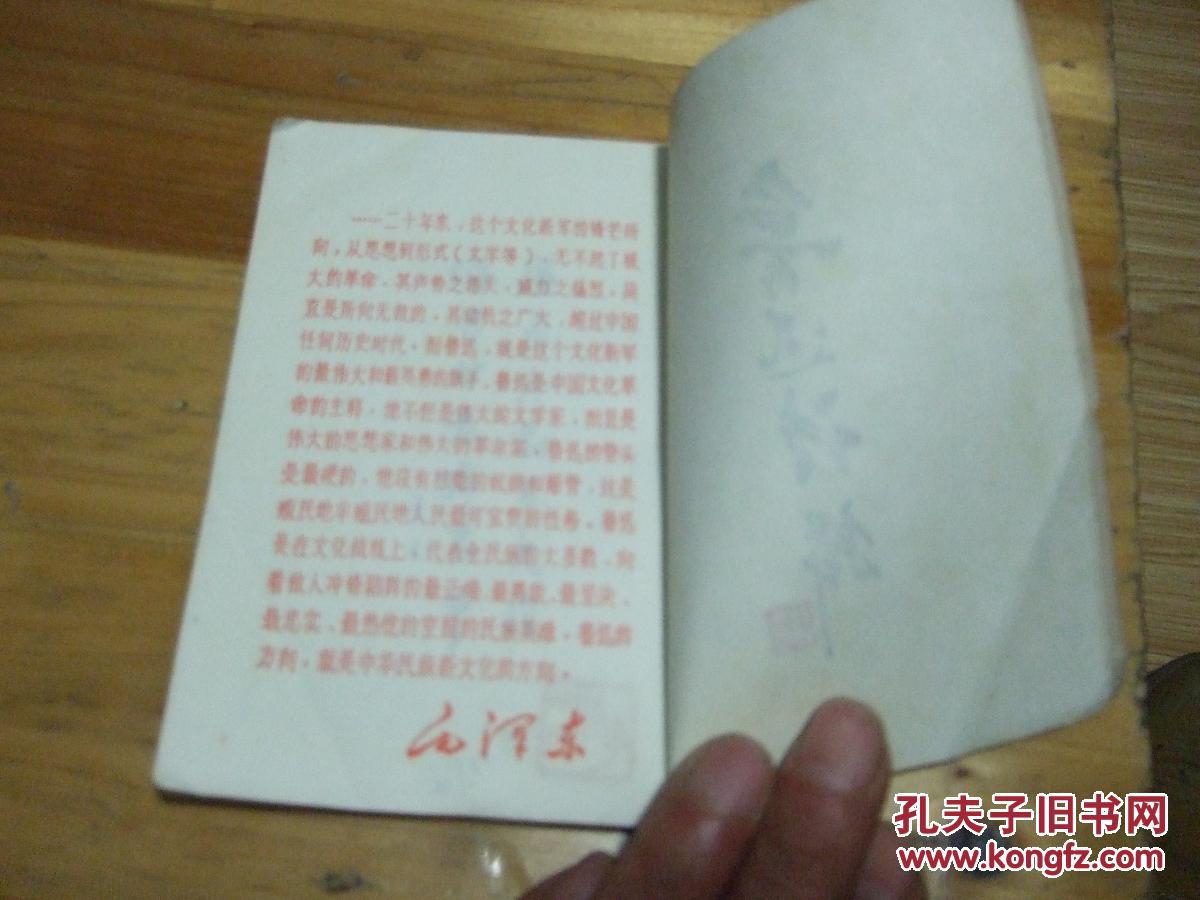 ……二十年来，这个文化新军的锋芒所
向，从思想到形式（文字等），无不起了极
大的革命。其声势之浩大，威力之猛烈，简
直是所向无敌的。其动员之广大，超过中国
任何历史时代。而鲁迅，就是这个文化新军
的最伟大和最英勇的旗手。鲁迅是中国文化革
命的主将，他不但是伟大的文学家，而且是
伟大的思想家和伟大的革命家。鲁迅的骨头
是最硬的，他没有丝毫的奴颜和媚骨，这是
殖民地半殖民地人民最可宝贵的性格。鲁迅
是在文化战线上，代表全民族的大多数，向
着敌人冲锋陷阵的最正确、最勇敢、最坚决、
最忠实、最热忱的空前的民族英雄。鲁迅的
方向，就是中华民族新文化的方向。
毛泽东
孔夫子旧书网
www.kongfz.com